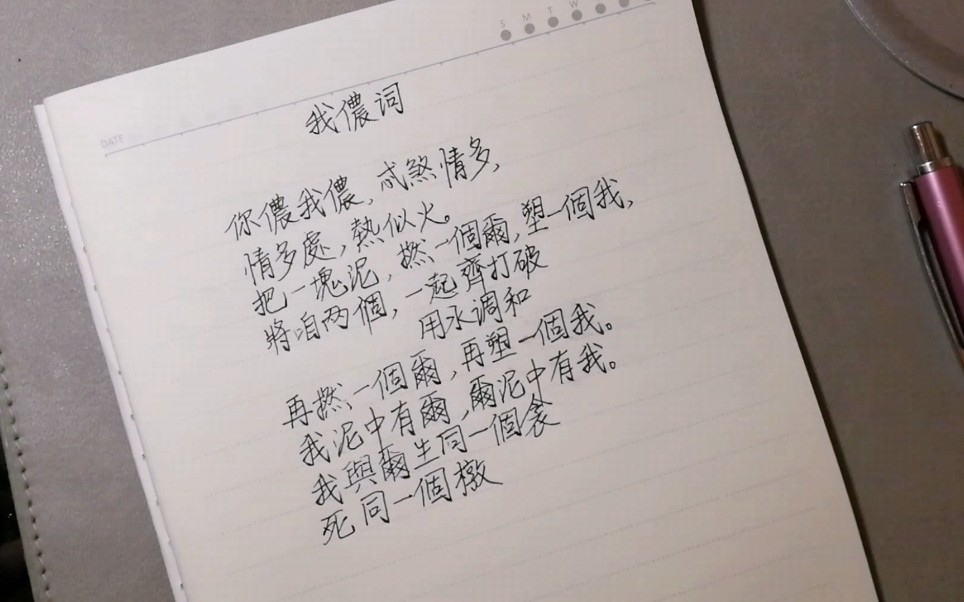 DATE
S M T W
我儂词
你儂我儂,忒煞情多,
情多處,熱似火。
把一塊泥,撚一個爾,塑一個我,
將咱两個,一起齊打破
用水调和
再撚一個爾,再塑一個我。
我泥中有爾,爾泥中有我。
我與爾生同一個衾
死同一個